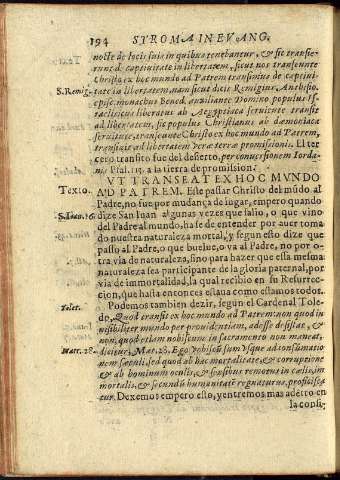 194 STROMA IN EVANG.
nocte de locis suis in quibus tenebantur, & sic transie-
runt de captiuitate in libertatem, sicut nos transeunte
Christo ex hoc mundo ad Patrem transimus de captiui-
S. Remig. tate in libertatem, nam sicut dicit Remigius Antissio.
episc. monachus Bened. auxiliante Domino populus Is-
raeliticus liberatus ab Aegyptiaca seruitute transit
ad libertatem, sic populus Christianus ab dæmoniaca
seruitute, transeunte Christo ex hoc mundo ad Patrem,
transiuit ad libertatem veræ terræ promissionis. El ter
cero transito fue del desierto, per conuersionem Iorda-
nis Psal. 113. a la tierra de promission.
VT TRANSEAT EX HOC MVNDO
Texto. AD PATREM. Este passar Christo del mũdo al
Padre, no fue por mudança de lugar, empero quando
S. Ioan. 16. dize San Iuan algunas vezes que salio, o que vino
del Padre al mundo, ha se de entender por auer toma
do nuestra naturaleza mortal, y segun esto dize que
passo al Padre, o que buelue, o va al Padre, no por o-
tra via de naturaleza, sino para hazer que essa mesma
naturaleza sea participante de la gloria paternal, por
via de immortalidad, la qual recibio en su Resurrec-
cion, que hasta entonces estaua como estamos todos.
Podemos tambien dezir, segun el Cardenal Tole-
Tolet. do, Quod transit ex hoc mundo ad Patrem: non quod in
uisibiliter mundo per prouidentiam, adesse desistat, &
non, quod etiam nobiscum in sacramento non maneat,
Matt. 28. dicitur, Mat. 28. Ego vobiscum sum vsque ad consumatio
nem sæculi, sed quod ab hac mortalitate, & corruptione
& ab hominum oculis, & sensibus remotus in cælis, im
mortalis, & secundũ humanitatẽ regnaturus, proficisca
tur. Dexemos empero esto, y entremos mas adẽtro en
la consi-